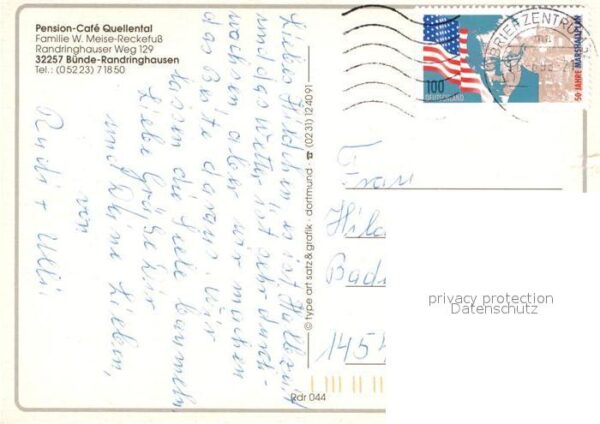 Pension-Café Quellental
Familie W. Meise-Reckefuß
Randringhauser Weg 129
32257 Bünde-Randringhausen
Tel.: (05223) 71850
Liebes Hildchen es ist
und das Wetter ist sehr durch-
wachsen, aber wir machen
das Beste daraus. Wir
lassen die Seele baumeln.
Liebe Grüße Dir
und Deine Lieben,
von
Rudi + Ulli.
© type art satz & grafik · dortmund · ☎ (0231) 124091
Rdr 044
BRIEFZENTRUM
100
DEUTSCHLAND
50 JAHRE MARSHALLPLAN
Frau
Hild
Bad
145
privacy protection
Datenschutz